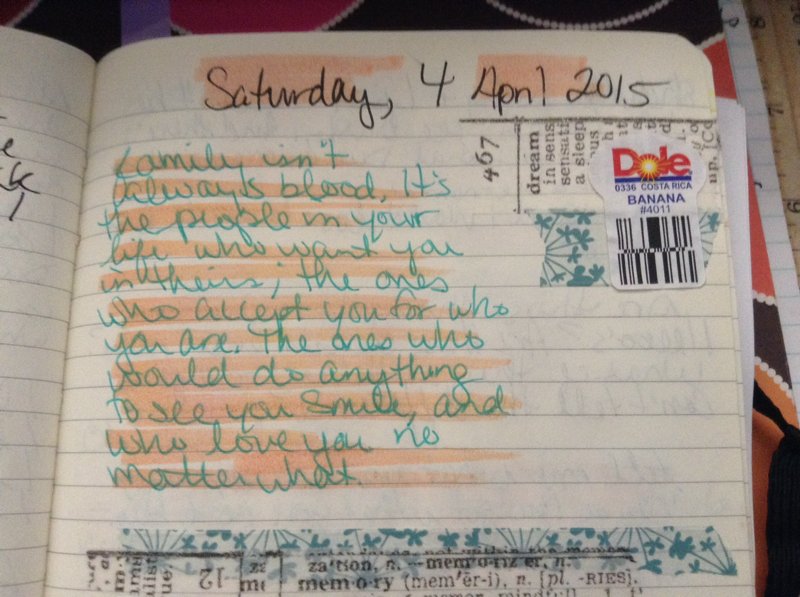 Saturday, 4 April 2015
467
dream
in sens
sensati
a sleep
Dole
0336 COSTA RICA
BANANA
#4011
family isn't
always blood. It's
the people in your
life who want you
in theirs; the ones
who accept you for who
you are. The ones who
would do anything
to see you smile, and
who love you no
matter what.
12
za'tion, n. — mem'o·riz'er, n.
mem·o·ry (mem'ēr-i), n. [pl. -RIES],